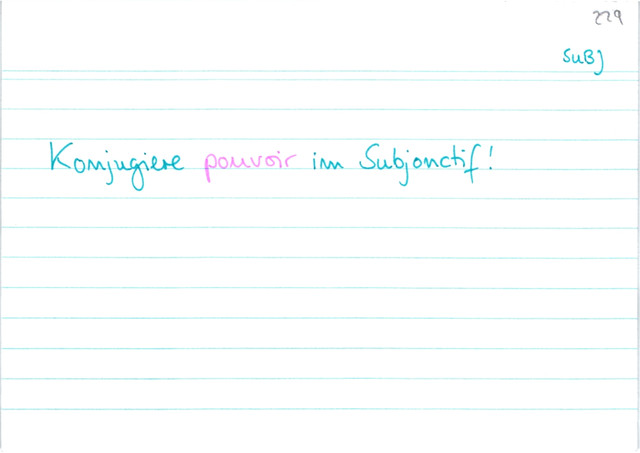 229
SUBJ
Konjugiere pouvoir im Subjonctif!